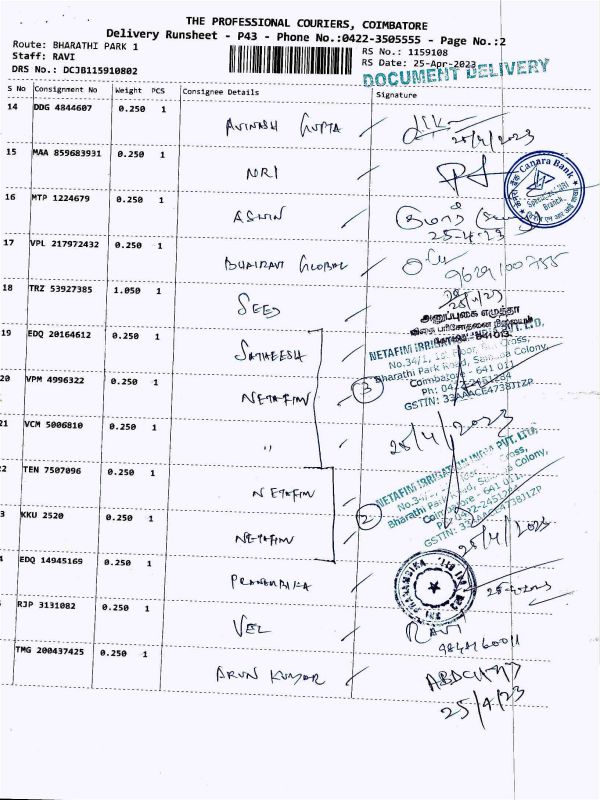 THE PROFESSIONAL COURIERS, COIMBATORE
Delivery Runsheet - P43 - Phone No.:0422-3505555 - Page No.:2
Route: BHARATHI PARK 1
RS No.: 1159108
Staff: RAVI
RS Date: 25-Apr-2023
DRS No.: DCJB115910802
DOCUMENT DELIVERY
S No Consignment No Weight PCS Consignee Details Signature
14 DDG 4844607 0.250 1 AVINASH GUPTA
25/4/2023
15 MAA 859683931 0.250 1 NRI
Canara Bank
16 MTP 1224679 0.250 1 ASWIN
25-4-23
17 VPL 217972432 0.250 1 BHAIRAVI GLOBAL
9629100755
18 TRZ 53927385 1.050 1 SEED
19 EDQ 20164612 0.250 1 SATHEESH
NETAFIM IRRIGATION INDIA PVT. LTD,
No.34/1, 1st Floor, Cross,
Bharathi Park Road, Saibaba Colony,
Coimbatore - 641 011
Ph: 0422-2451284
GSTIN: 33AAACE4738J1ZP
20 VPM 4996322 0.250 1 NETAFIM
3
21 VCM 5006810 0.250 1 "
25/4/2023
2 TEN 7507096 0.250 1 NETAFIM
NETAFIM IRRIGATION INDIA PVT. LTD.
Bharathi Park Road, Saibaba Colony,
Coimbatore - 641 011.
GSTIN: 33AAACE4738J1ZP
3 KKU 2520 0.250 1 NETAFIM
2
25/4/2023
4 EDQ 14945169 0.250 1
RJP 3131082 0.250 1 VEL
RAVI
TMG 200437425 0.250 1 ARUN KUMAR
25/4/23